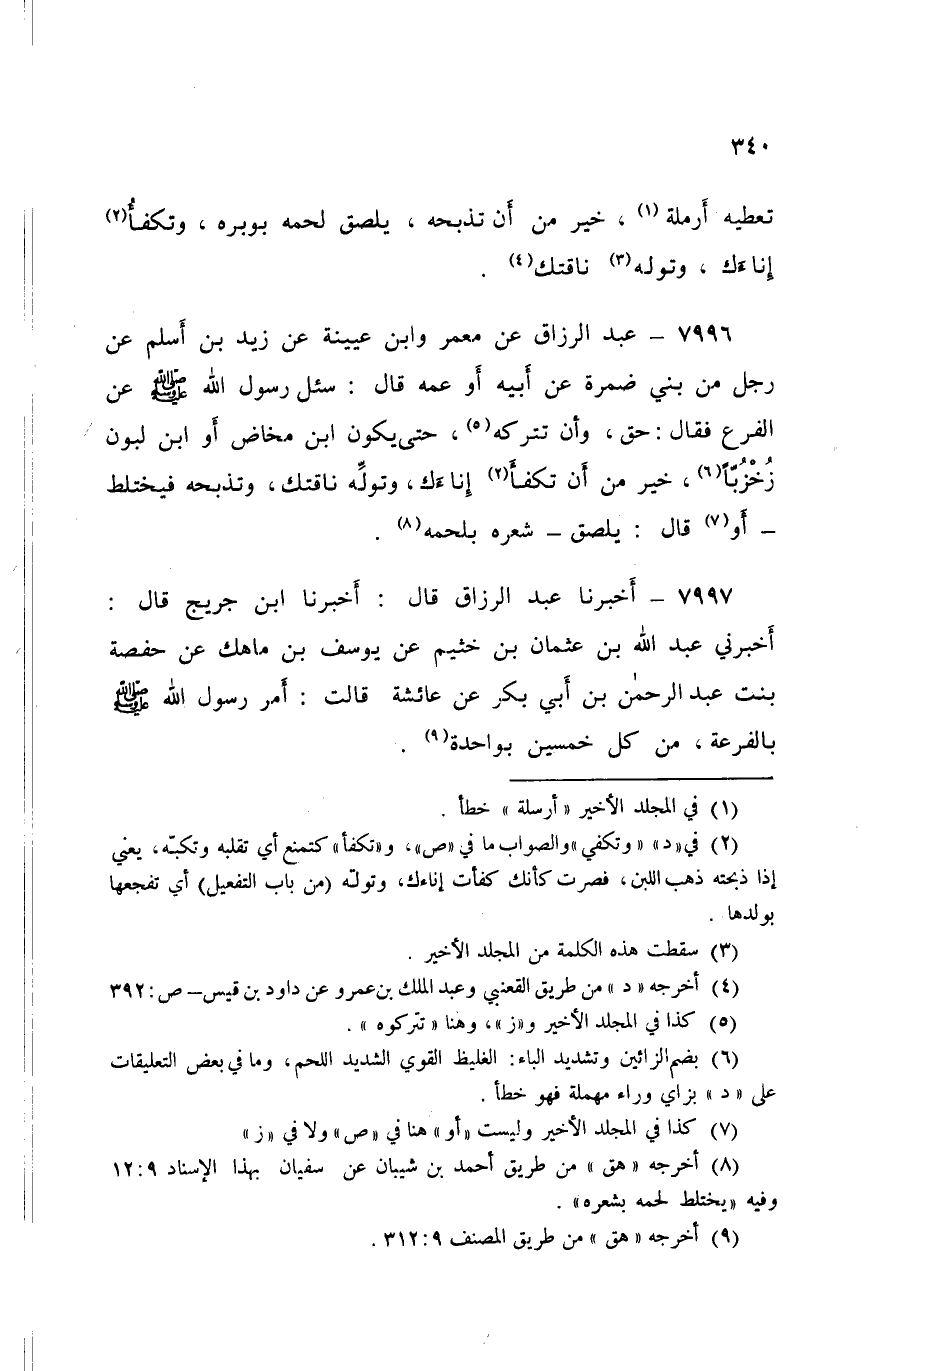 ٣٤٠
تعطيه أَرملة(١) ، خير من أَن تذبحه ، يلصق لحمه بوبره ، وتكفأُ(٢)
إِناءَك ، وتوله(٣) ناقتك(٤) .
٧٩٩٦ – عبد الرزاق عن معمر وابن عيينة عن زيد بن أَسلم عن
رجل من بني ضمرة عن أَبيه أَو عمه قال : سئل رسول الله ﷺ عن
الفرع فقال : حق ، وأَن تتركه(٥) ، حتى يكون ابن مخاض أَو ابن لبون
زُخْزُبّاً(٦) ، خير من أَن تكفأَ(٢) إِناءَك ، وتولِّه ناقتك ، وتذبحه فيختلط
– أَو(٧) قال : يلصق – شعره بلحمه(٨) .
٧٩٩٧ – أَخبرنا عبد الرزاق قال : أَخبرنا ابن جريج قال :
أَخبرني عبد الله بن عثمان بن خثيم عن يوسف بن ماهك عن حفصة
بنت عبد الرحمٰن بن أَبي بكر عن عائشة قالت : أَمر رسول الله ﷺ
بالفرعة ، من كل خمسين بواحدة(٩) .
(١) في المجلد الأخير « أرسلة » خطأ .
(٢) في « د » « وتكفي » والصواب ما في « ص » ، و « تكفأ » كتمنع أي تقلبه وتكبّه ، يعني
إذا ذبحته ذهب اللبن ، فصرت كأنك كفأت إناءك ، وتولّه (من باب التفعيل) أي تفجعها
بولدها .
(٣) سقطت هذه الكلمة من المجلد الأخير .
(٤) أخرجه « د » من طريق القعنبي وعبد الملك بن عمرو عن داود بن قيس – ص : ٣٩٢
(٥) كذا في المجلد الأخير و « ز » ، وهنا « تتركوه » .
(٦) بضم الزائين وتشديد الباء : الغليظ القوي الشديد اللحم ، وما في بعض التعليقات
على « د » بزاي وراء مهملة فهو خطأ .
(٧) كذا في المجلد الأخير وليست « أو » هنا في « ص » ولا في « ز »
(٨) أخرجه « هق » من طريق أحمد بن شيبان عن سفيان بهذا الإسناد ٩ : ١٢
وفيه « يختلط لحمه بشعره » .
(٩) أخرجه « هق » من طريق المصنف ٩ : ٣١٢ .